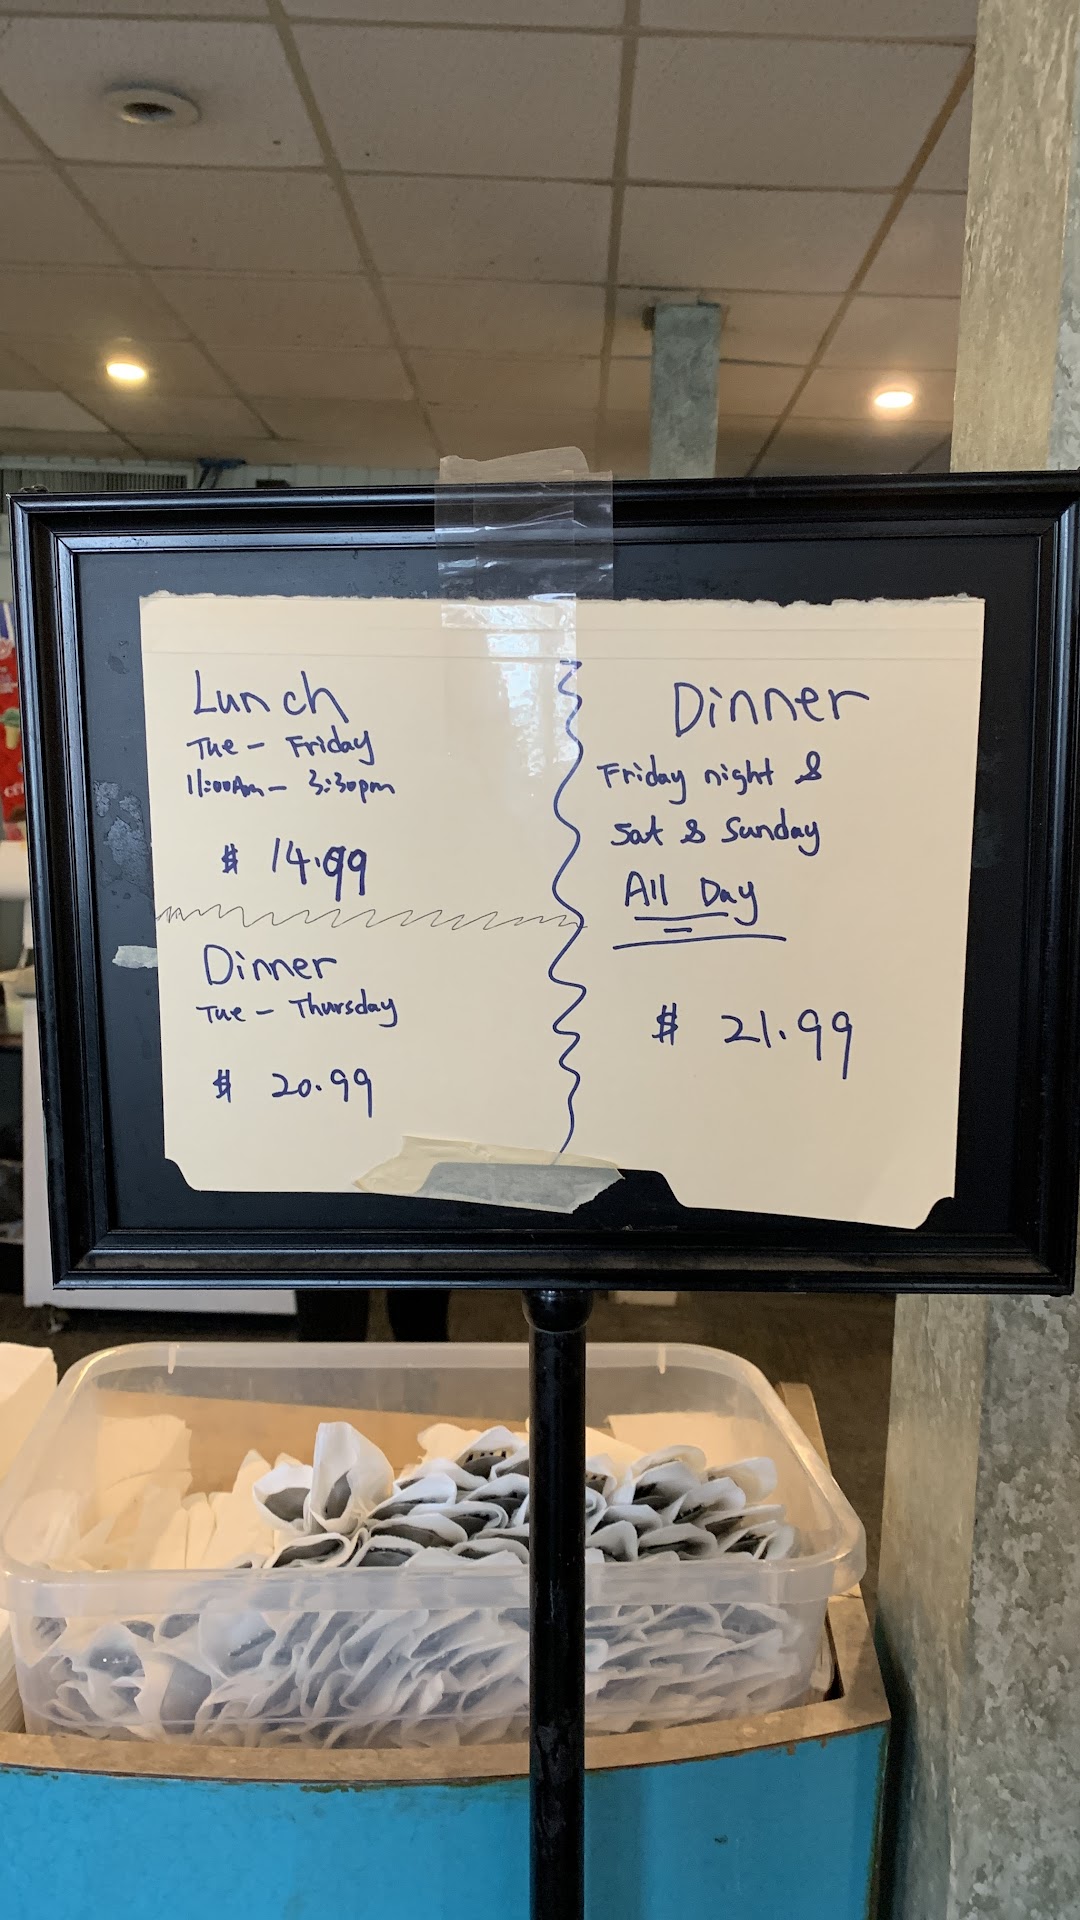 Lunch
Tue - Friday
11:00Am - 3:30pm
$ 14.99
Dinner
Tue - Thursday
$ 20.99
Dinner
Friday night &
Sat & Sunday
All Day
$ 21.99